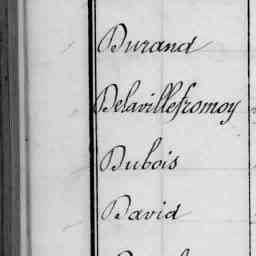 Durand
Delavillefromoy
Dubois
David